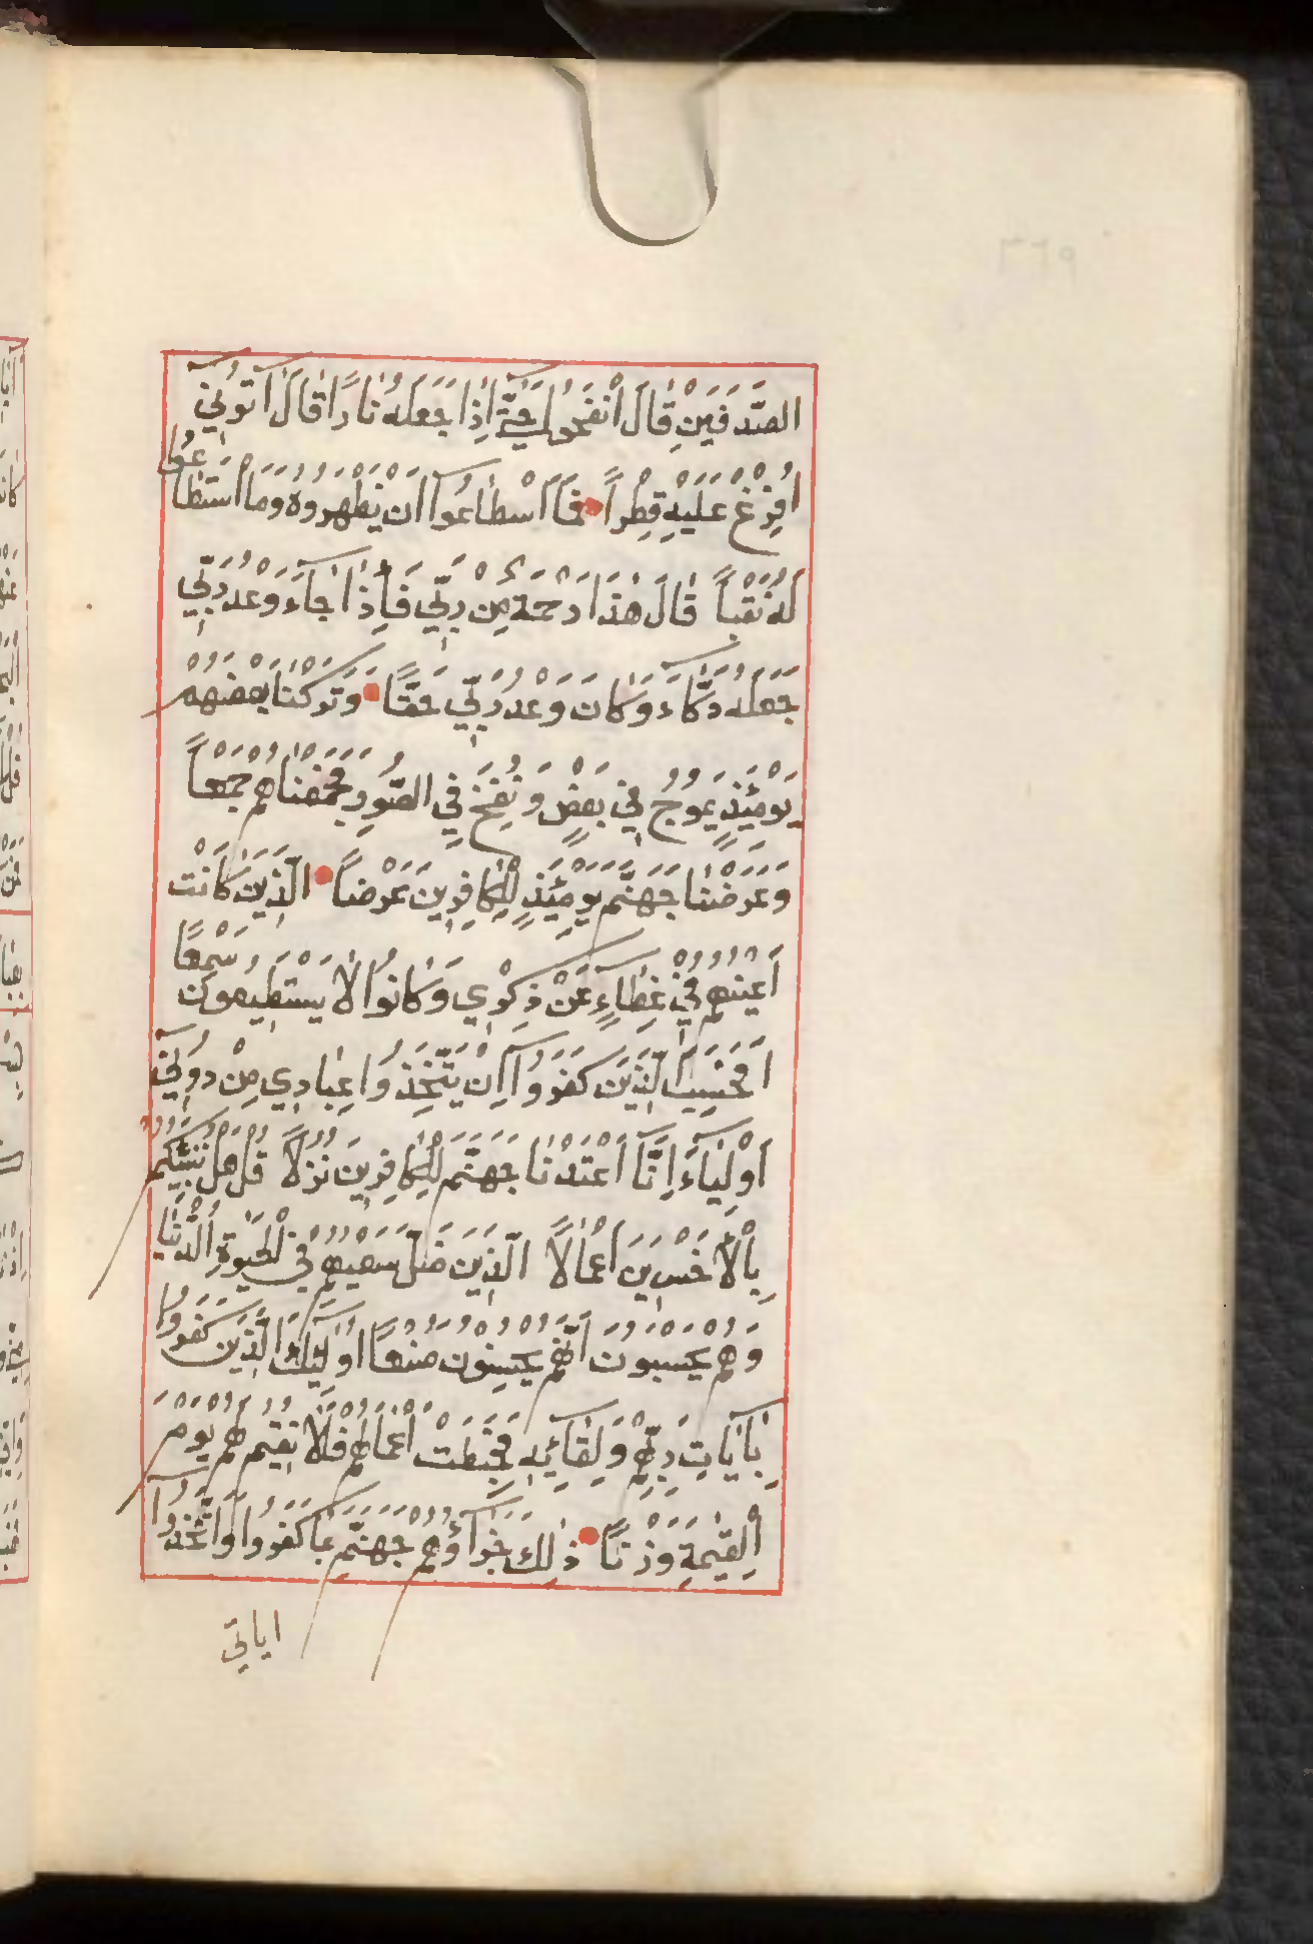 ٣٦٩
الصَّدَفَيْنِ قَالَ انْفُخُوا حَتَّىٰ اِذَا جَعَلَهُ نَارًا قَالَ اٰتُونِي
اُفْرِغْ عَلَيْهِ قِطْراً فَمَا اَسْطَاعُوا اَنْ يَظْهَرُوهُ وَمَا اسْتَطَاعُوا
لَهُ نَقْباً قَالَ هٰذَا رَحْمَةٌ مِنْ رَبِّي فَاِذَا جَاۤءَ وَعْدُ رَبِّي
جَعَلَهُ دَكَّاۤءَ وَكَانَ وَعْدُ رَبِّي حَقًّا وَتَرَكْنَا بَعْضَهُمْ
يَوْمَئِذٍ يَمُوجُ فِي بَعْضٍ وَنُفِخَ فِي الصُّورِ فَجَمَعْنَاهُمْ جَمْعاً
وَعَرَضْنَا جَهَنَّمَ يَوْمَئِذٍ لِلْكَافِرِينَ عَرْضاً الَّذِينَ كَانَتْ
اَعْيُنُهُمْ فِي غِطَاۤءٍ عَنْ ذِكْرِي وَكَانُوا لَا يَسْتَطِيعُونَ سَمْعًا
اَفَحَسِبَ الَّذِينَ كَفَرُوا اَنْ يَتَّخِذُوا عِبَادِي مِنْ دُونِي
اَوْلِيَاۤءَ اِنَّا اَعْتَدْنَا جَهَنَّمَ لِلْكَافِرِينَ نُزُلاً قُلْ هَلْ نُنَبِّئُكُمْ
بِالْاَخْسَرِينَ اَعْمَالاً الَّذِينَ ضَلَّ سَعْيُهُمْ فِي الْحَيٰوةِ الدُّنْيَا
وَهُمْ يَحْسَبُونَ اَنَّهُمْ يُحْسِنُونَ صُنْعاً اُولٰۤئِكَ الَّذِينَ كَفَرُوا
بِاٰيَاتِ رَبِّهِمْ وَلِقَاۤئِهِ فَحَبِطَتْ اَعْمَالُهُمْ فَلَا نُقِيمُ لَهُمْ يَوْمَ
الْقِيٰمَةِ وَزْنًا ذٰلِكَ جَزَاۤؤُهُمْ جَهَنَّمُ بِمَا كَفَرُوا وَاتَّخَذُوا
اياتي